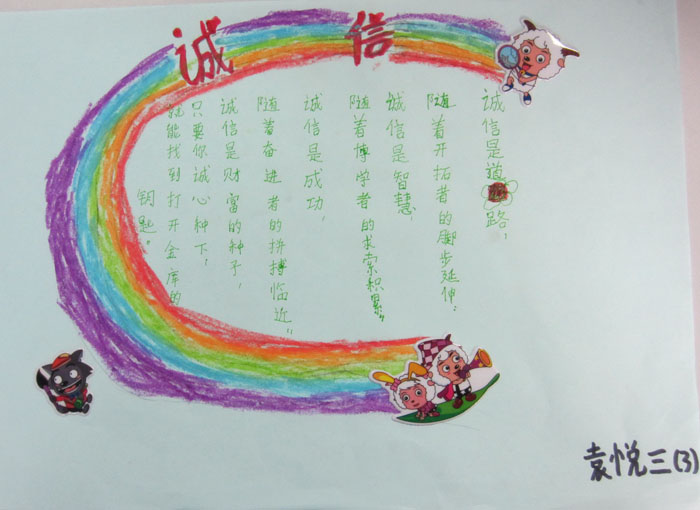 诚信
诚信是道路，
随着开拓者的脚步延伸；
诚信是智慧，
随着博学者的求索积累；
诚信是成功，
随着奋进者的拼搏临近；
诚信是财富的种子，
只要你诚心种下，
就能找到打开金库的
钥匙。
袁悦三(3)